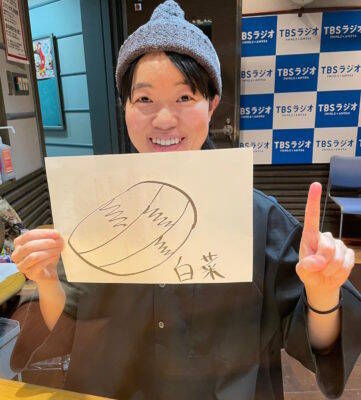 TBSラジオ TBSラジオ TBSラジオ
TBSラジオ TBSラジオ TBSラジオ
TBSラジオ TBSラジオ TBSラジオ
TBSラジオ TBSラジオ TBSラジオ
白菜